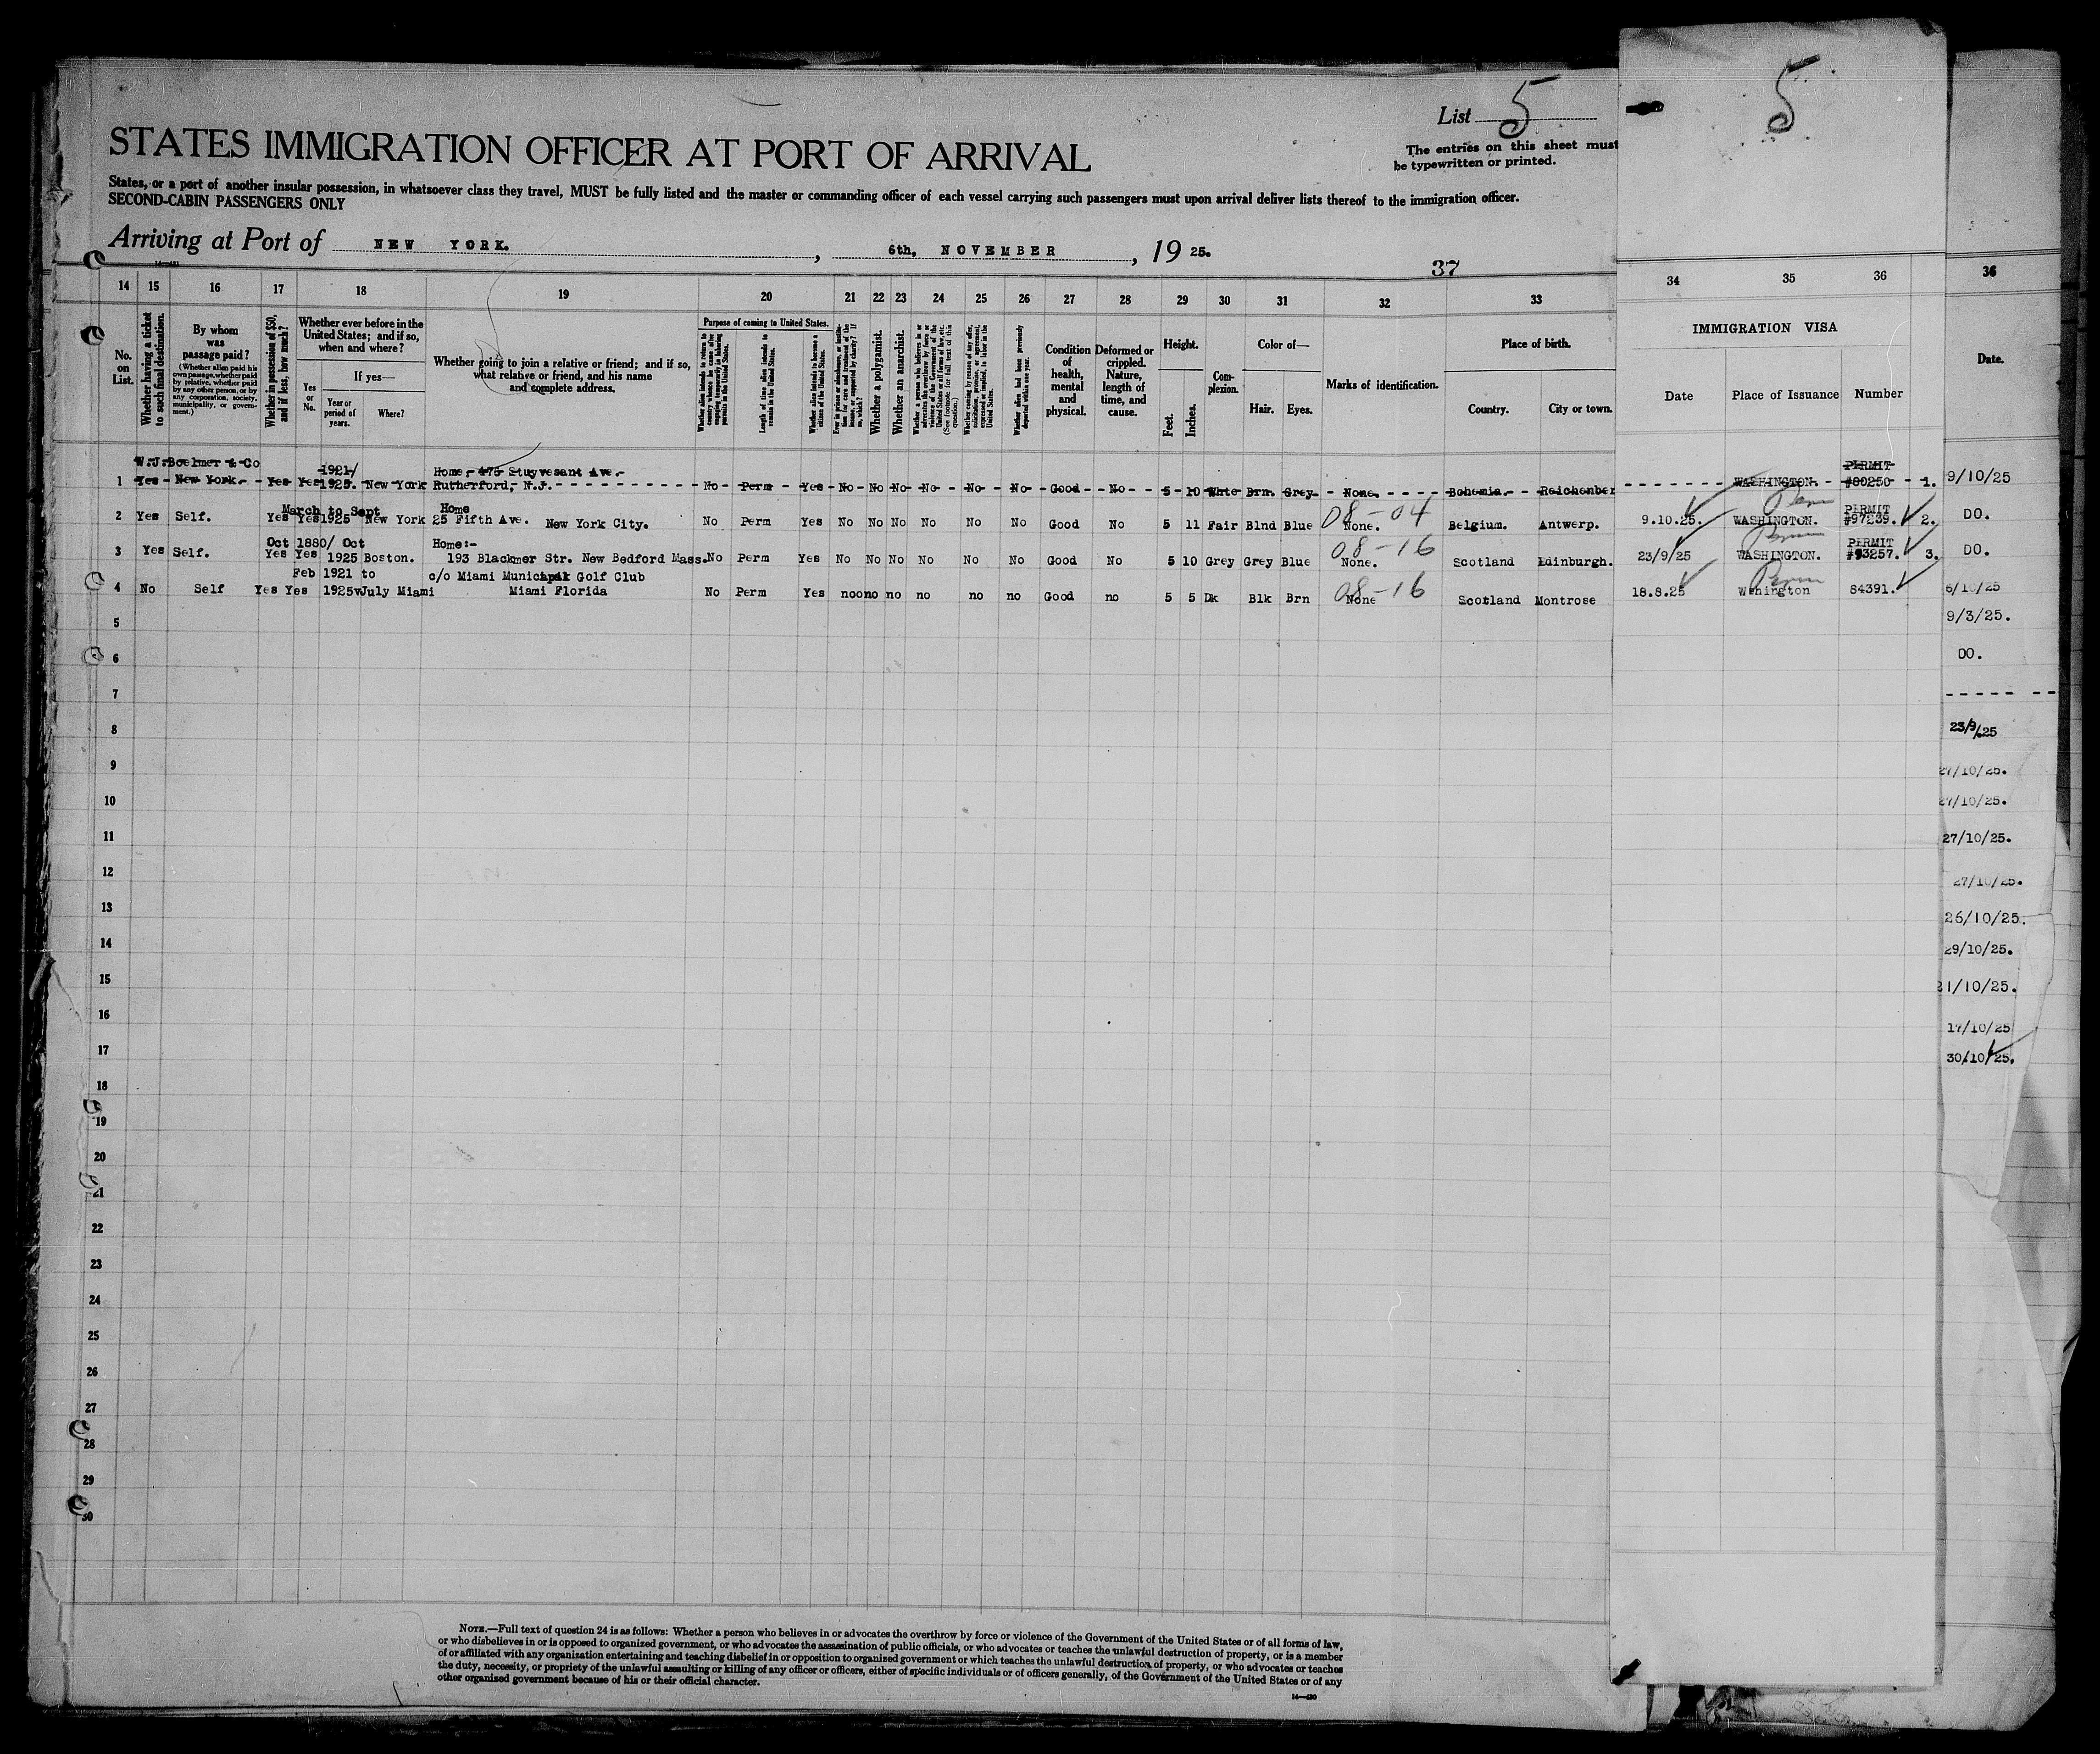 List 5
5
STATES IMMIGRATION OFFICER AT PORT OF ARRIVAL
The entries on this sheet must
be typewritten or printed.
States, or a port of another insular possession, in whatsoever class they travel, MUST be fully listed and the master or commanding officer of each vessel carrying such passengers must upon arrival deliver lists thereof to the immigration officer.
SECOND-CABIN PASSENGERS ONLY
Arriving at Port of NEW YORK. , 6th, NOVEMBER , 19 25.
37
14 15 16 17 18 19 20 21 22 23 24 25 26 27 28 29 30 31 32 33 34 35 36 36
No. on List.
Whether having a ticket to such final destination.
By whom was passage paid?
(Whether alien paid his own passage, whether paid by relative, whether paid by any other person, or by any corporation, society, municipality, or government.)
Whether in possession of $50, and if less, how much?
Whether ever before in the United States; and if so, when and where?
Yes or No.
If yes—
Year or period of years.
Where?
Whether going to join a relative or friend; and if so, what relative or friend, and his name and complete address.
Purpose of coming to United States.
Whether alien intends to return to country whence he came after engaging temporarily in laboring pursuits in the United States.
Length of time alien intends to remain in the United States.
Whether alien intends to become a citizen of the United States.
Ever in prison or almshouse, or institution for care and treatment of the insane, or supported by charity? If so, which?
Whether a polygamist.
Whether an anarchist.
Whether a person who believes in or advocates the overthrow by force or violence of the Government of the United States or all forms of law, etc. (See footnote for full text of this question.)
Whether coming by reason of any offer, solicitation, promise, or agreement, expressed or implied, to labor in the United States.
Whether alien had been previously deported within one year.
Condition of health, mental and physical.
Deformed or crippled. Nature, length of time, and cause.
Height.
Feet.
Inches.
Complexion.
Color of—
Hair.
Eyes.
Marks of identification.
Place of birth.
Country.
City or town.
IMMIGRATION VISA
Date
Place of Issuance
Number
Date.
W.J. Boelmer & Co 1921/ Home,- 475 Stuyvesant Ave.- PERMIT
1 Yes - New York. - Yes Yes 1925. New York Rutherford, N.J. No - Perm - Yes - No - No - No - No - No - No - Good - No - 5 - 10 Whte Brn. Grey None. Bohemia. Reichenber WASHINGTON. #80250 1. 9/10/25
March to Sept Home 08-04 Perm PERMIT
2 Yes Self. Yes Yes 1925 New York 25 Fifth Ave. New York City. No Perm Yes No No No No No No Good No 5 11 Fair Blnd Blue None. Belgium. Antwerp. 9.10.25. WASHINGTON. #97239. 2. DO.
Oct 1880/ Oct Home:- 08-16 Perm PERMIT
3 Yes Self. Yes Yes 1925 Boston. 193 Blackmer Str. New Bedford Mass. No Perm Yes No No No No No No Good No 5 10 Grey Grey Blue None. Scotland Edinburgh. 23/9/25 WASHINGTON. #93257. 3. DO.
Feb 1921 to c/o Miami Municipal Golf Club 08-16 Perm
4 No Self Yes Yes 1925 July Miami Miami Florida No Perm Yes no no no no no no Good no 5 5 Dk Blk Brn None Scotland Montrose 18.8.25 Wshington 84391. 6/10/25
5 9/3/25.
6 DO.
7
8 23/9/25
9 27/10/25.
10 27/10/25.
11 27/10/25.
12 27/10/25.
13 26/10/25.
14 29/10/25.
15 21/10/25.
16 17/10/25
17 30/10/25.
18
19
20
21
22
23
24
25
26
27
28
29
30
NOTE.—Full text of question 24 is as follows: Whether a person who believes in or advocates the overthrow by force or violence of the Government of the United States or of all forms of law,
or who disbelieves in or is opposed to organized government, or who advocates the assassination of public officials, or who advocates or teaches the unlawful destruction of property, or is a member
of or affiliated with any organization entertaining and teaching disbelief in or opposition to organized government or which teaches the unlawful destruction of property, or who advocates or teaches
the duty, necessity, or propriety of the unlawful assaulting or killing of any officer or officers, either of specific individuals or of officers generally, of the Government of the United States or of any
other organized government because of his or their official character.